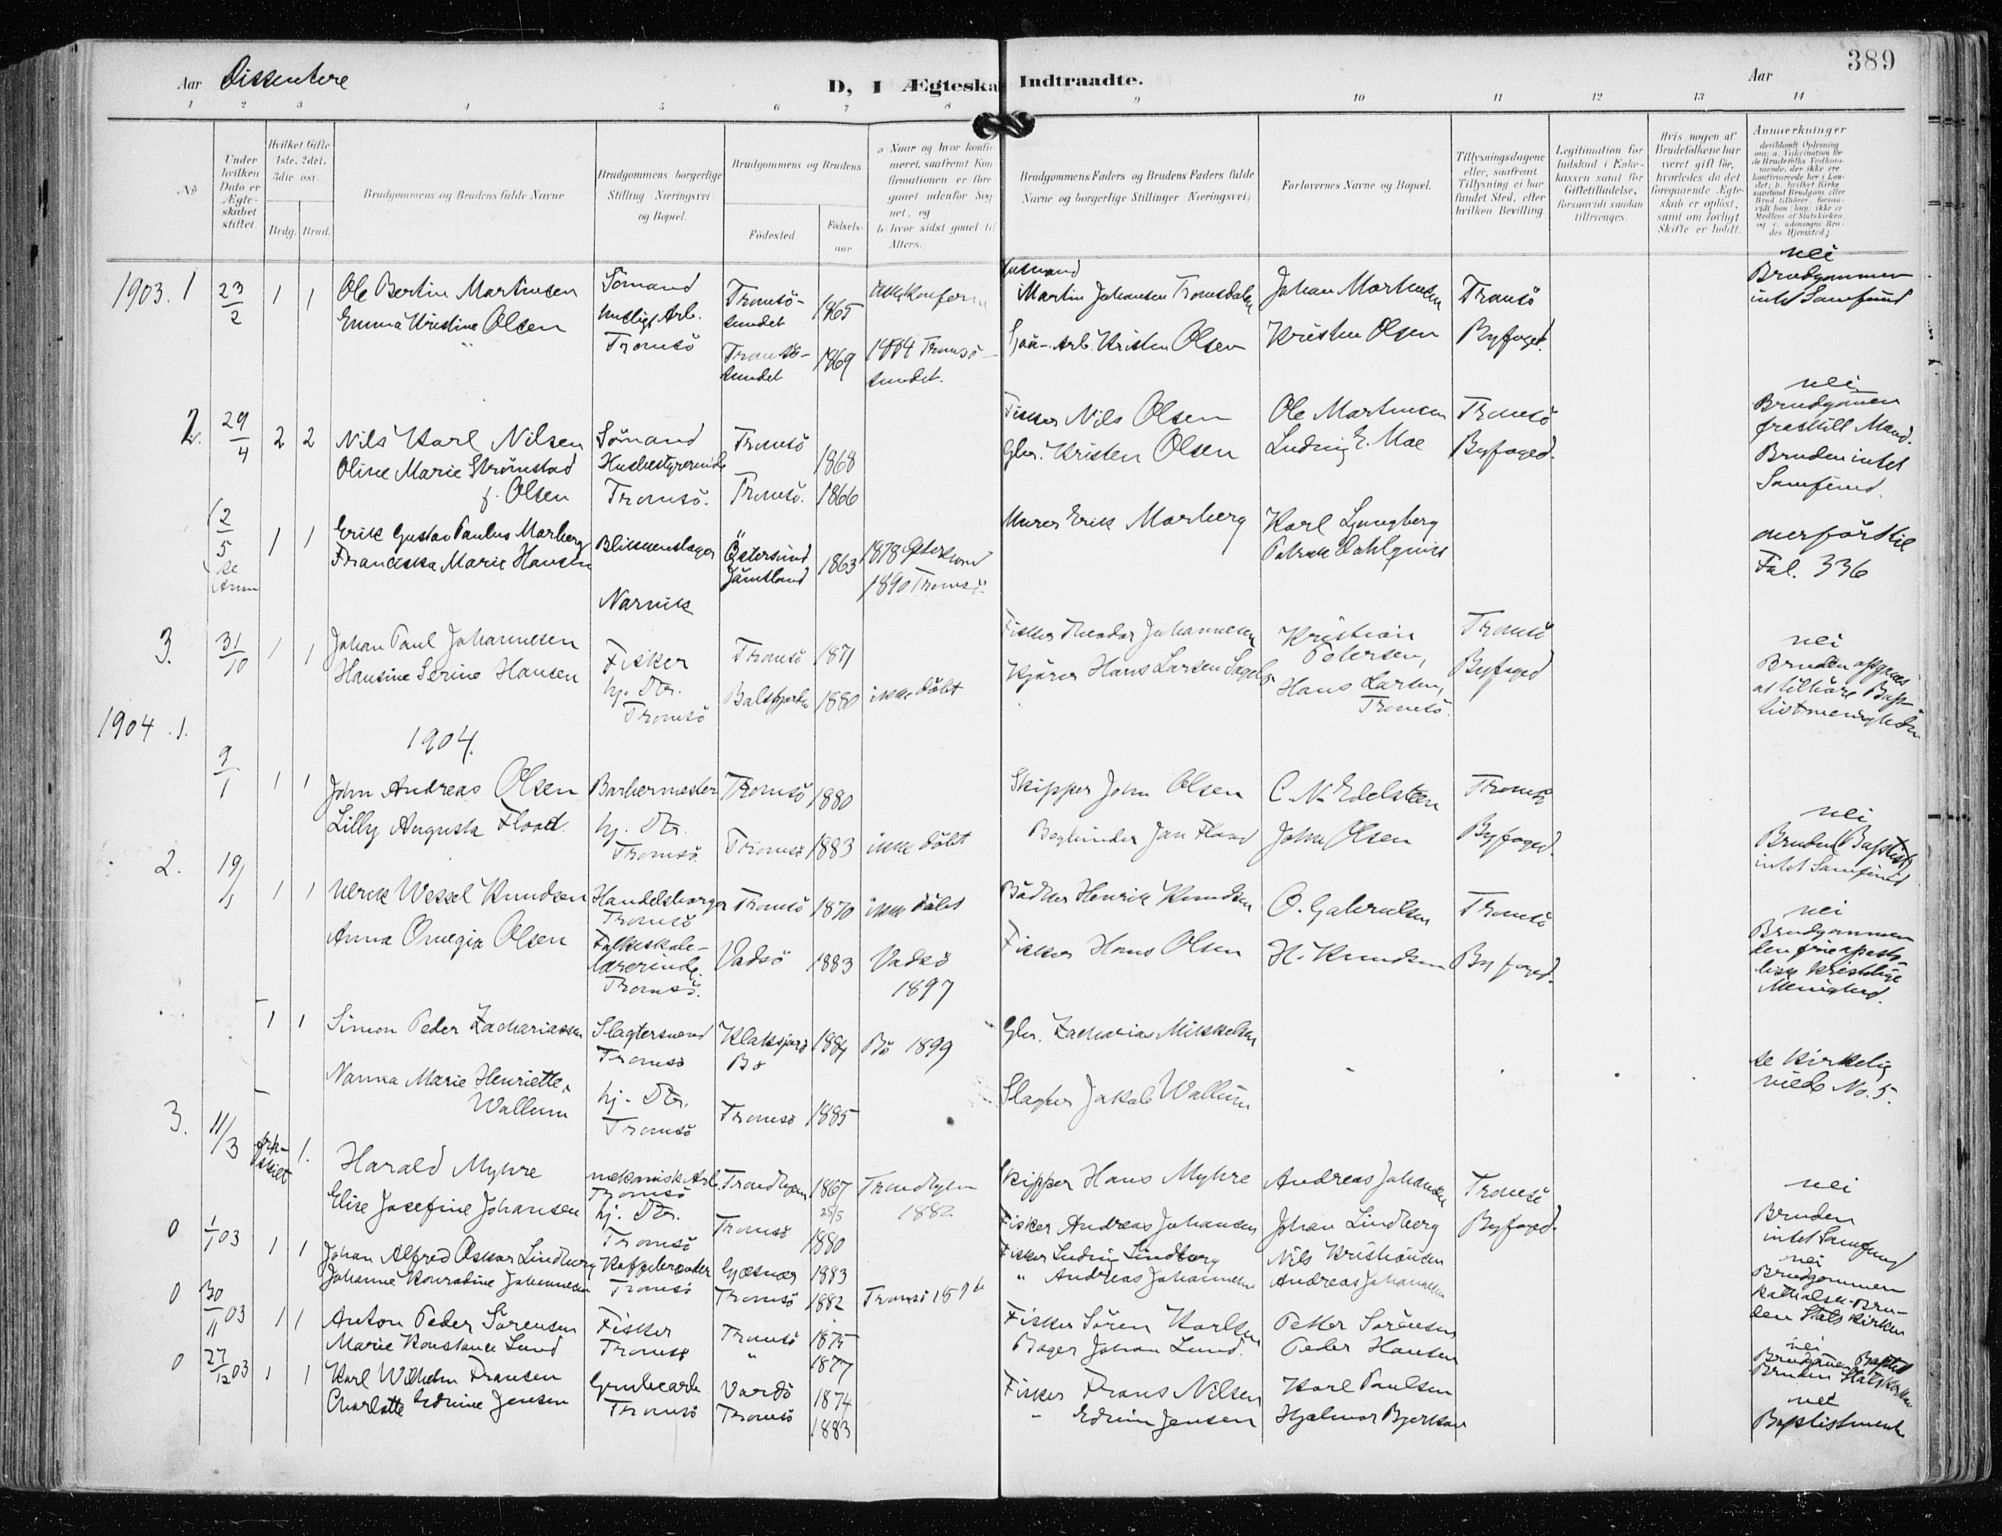 389
Aar Dissentere
D, I Ægteska Indtraadte.
Aar
1 2 3 4 5 6 7 8 9 10 11 12 13 14
No
Under hvilken Dato er Ægteskabet stiftet
Hvilket Gifte 1ste, 2det, 3die osv.
Brdg. Brud.
Brudgommens og Brudens fulde Navne
Brudgommens borgerlige Stilling Næringsvei og Bopæl.
Brudgommens og Brudens
Fødested
Fødselsaar.
a Naar og hvor konfirmeret, saafremt Konfirmationen er foregaaet udenfor Sognet, og
b hvor sidst gaaet til Alters.
Brudgommens Faders og Brudens Faders fulde Navne og borgerlige Stillinger Næringsvei)
Forlovernes Navne og Bopæl.
Tillysningsdagene eller, saafremt Tillysning ei har fundet Sted, efter hvilken Bevilling
Legitimation for Indskud i Enkekassen samt for Giftetilladelse, forsaavidt saadan tiltrænges.
Hvis nogen af Brudefolkene har været gift før, hvorledes da det foregaaende Ægteskab er opløst, samt om lovligt Skifte er holdt.
Anmerkninger
1903. 1 23/2 1 1
Ole Bertin Martinsen
Emma Kristine Olsen
Sömand
Tromsö
Tromsösundet 1865
Tromsösundet 1869
1884 Tromsösundet.
Martin Johansen Tromsdalen
Arb. Kristen Olsen
Johan Martinsen
Kristen Olsen
Tromsö Byfoged.
nei
Brudgommen intet Samfund
2. 29/4 2 2
Nils Karl Nilsen
Oline Marie Strömstad
f. Olsen
Sömand
Husbestyrerinde
Tromsö.
Tromsö 1868
Tromsö. 1866
Fisker Nils Olsen
Gbr. Kristen Olsen
Ole Martinsen
Ludvig E. Moe
Tromsö
Byfoged.
nei
Brudgomen fraskilt Mand.
Bruden intet Samfund.
2/5 1 1
Erik Gustav Paulus Marberg
Franciska Marie Hansen
Blikkenslager
Narvik
Östersund Jämtland 1863
1878 Östersund
1890 Tromsö.
Murer Erik Marberg
Karl Ljungberg
Patrik Dahlqvist
overfört til
Fol. 336
3. 31/10 1 1
Johan Paul Johannesen
Hansine Serine Hansen
Fisker
hj. Dtr.
Tromsö
Tromsö 1871
Balsfjorden 1880 ikke döbt
Fisker Theodor Johannesen
Kjörer Hans Larsen
Kristian Petersen,
Hans Larsen, Tromsö.
Tromsö
Byfoged
nei
Bruden opgives at tilhöre Baptistmenigheden
1904 1.
1904.
9/1 1 1
John Andreas Olsen
Lilly Augusta Flood.
Barbermester
hj. Dtr.
Tromsö
Tromsö 1880
Tromsö 1883 ikke döbt
Skipper John Olsen
Bogbinder Jan Flood
C. N. Edelsteen
John Olsen
Tromsö
Byfoged.
nei
Bruden (Baptist) intet Samfund
2. 19/1 1 1
Ulrik Wessel Knudsen
Anna Omegia Olsen
Handelsborger
Tromsö
Folkeskolelærerinde.
Tromsö.
Tromsö 1870 ikke döbt
Vadsö 1883 Vadsö
1897
Bödker Henrik Knudsen
Fisker Hans Olsen
O. Gabrielsen
H. Knudsen
Tromsö
Byfoged.
nei
Brudgommen den frie apostolisk kristelige Menighed.
1 1
Simon Peder Zachariassen
Nanna Marie Henriette Wallum
Slagtersvend
Tromsö
hj. Dtr.
Tromsö
Klaksjord Bö 1884 Bö 1899
Tromsö 1885
Gbr. Zacharias Mikkelsen
Slagter Jakob Wallum
se kirkelig viede No. 5.
3. 11/3 fraskilt 1.
Harald Myhre
Elise Josefine Johansen
mekanisk Arb.
Tromsö
hj. Dtr.
Tromsö
Trondhjem 1867 Trondhjem
25/5 1882
Tromsö 1880
Skipper Hans Myhre
Fisker Andreas Johansen
Andreas Johansen
Johan Lindberg
Tromsö
Byfoged.
nei
Bruden intet Samfund
0 1/1 03 1 1
Johan Alfred Oskar Lindberg
Johanne Konradine Johannesen
Tromsö
Gjæsvær 1883
Tromsö 1882
Fisker Ludvig Lindberg
" Andreas Johannesen
Nils Kristiansen
Andreas Johannesen
nei
Brudgommen katholsk - Bruden Statskirken
0 30/11 03 1 1
Anton Peder Sörensen
Marie Konstance Lund
Fisker
Tromsö
Tromsö 1875
" 1877
Fisker Sören Karlsen
Bager Johan Lund.
Petter Sörensen
Peder Hansen
nei
Brudgomen Baptist
Bruden Statskirken
0 27/12 03 1 1
Karl Wilhelm Fransen
Charlotte Edvine Jensen
Grubearb.
Tromsö
Vardö 1874
Tromsö 1883
Fisker Frans Nilsen
" Edvin Jensen
Karl Paulsen
Hjalmar Bjerkan
nei
Baptistmenh.